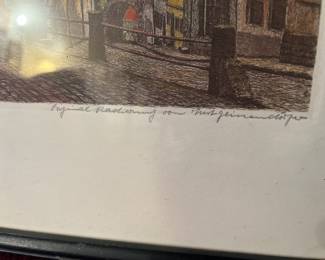 Original Radierung von